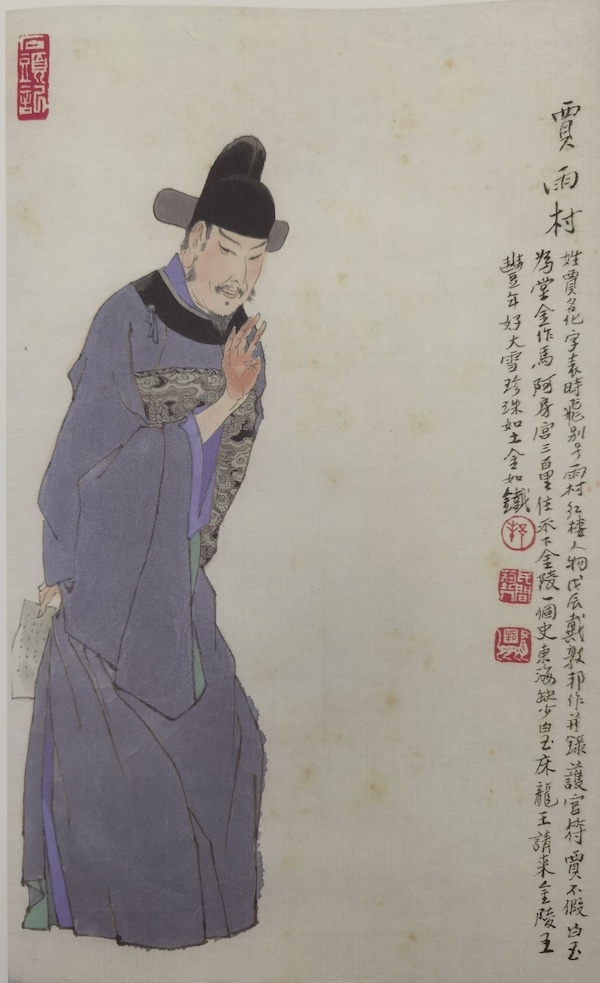 石頭記
賈雨村
姓賈名化字表時飛別号雨村紅樓人物戊辰戴敦邦作并錄護官符賈不假白玉
為堂金作馬阿房宮三百里住不下金陵一個史東海缺少白玉床龍王請来金陵王
豐年好大雪珍珠如土金如鐵
民間藝人